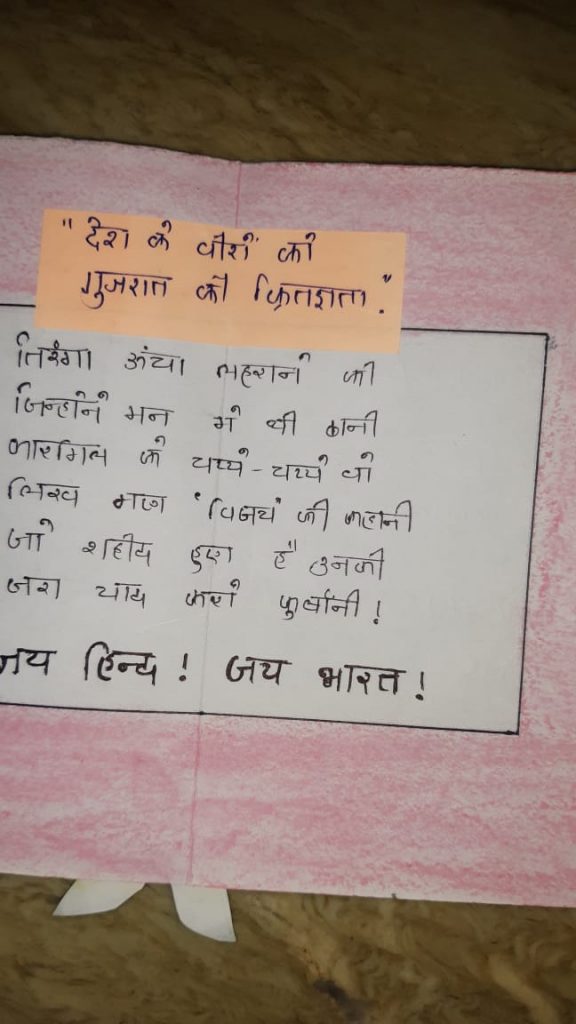 "देश के वीरों को
गुजरात की क्रितज्ञता."
तिरंगा ऊंचा लहराने की
जिन्होंने मन मे थी ठानी
कारगिल के चप्पे-चप्पे वो
लिख गए 'विजय' की कहानी
जो शहीद हुए है उनकी
जरा याद करो कुर्बानी!
जय हिन्द! जय भारत!